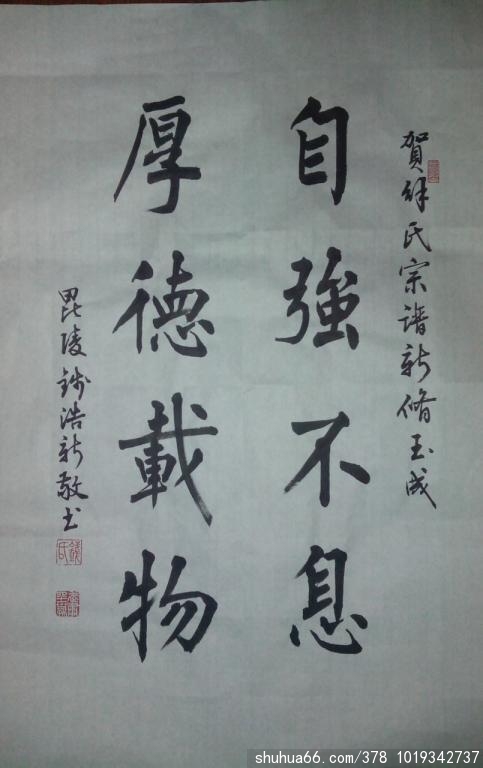 賀徐氏宗譜新脩玉成
自強不息
厚德載物
毘陵錢浩新敬书
錢氏
shuhua66.com/378 1019342737